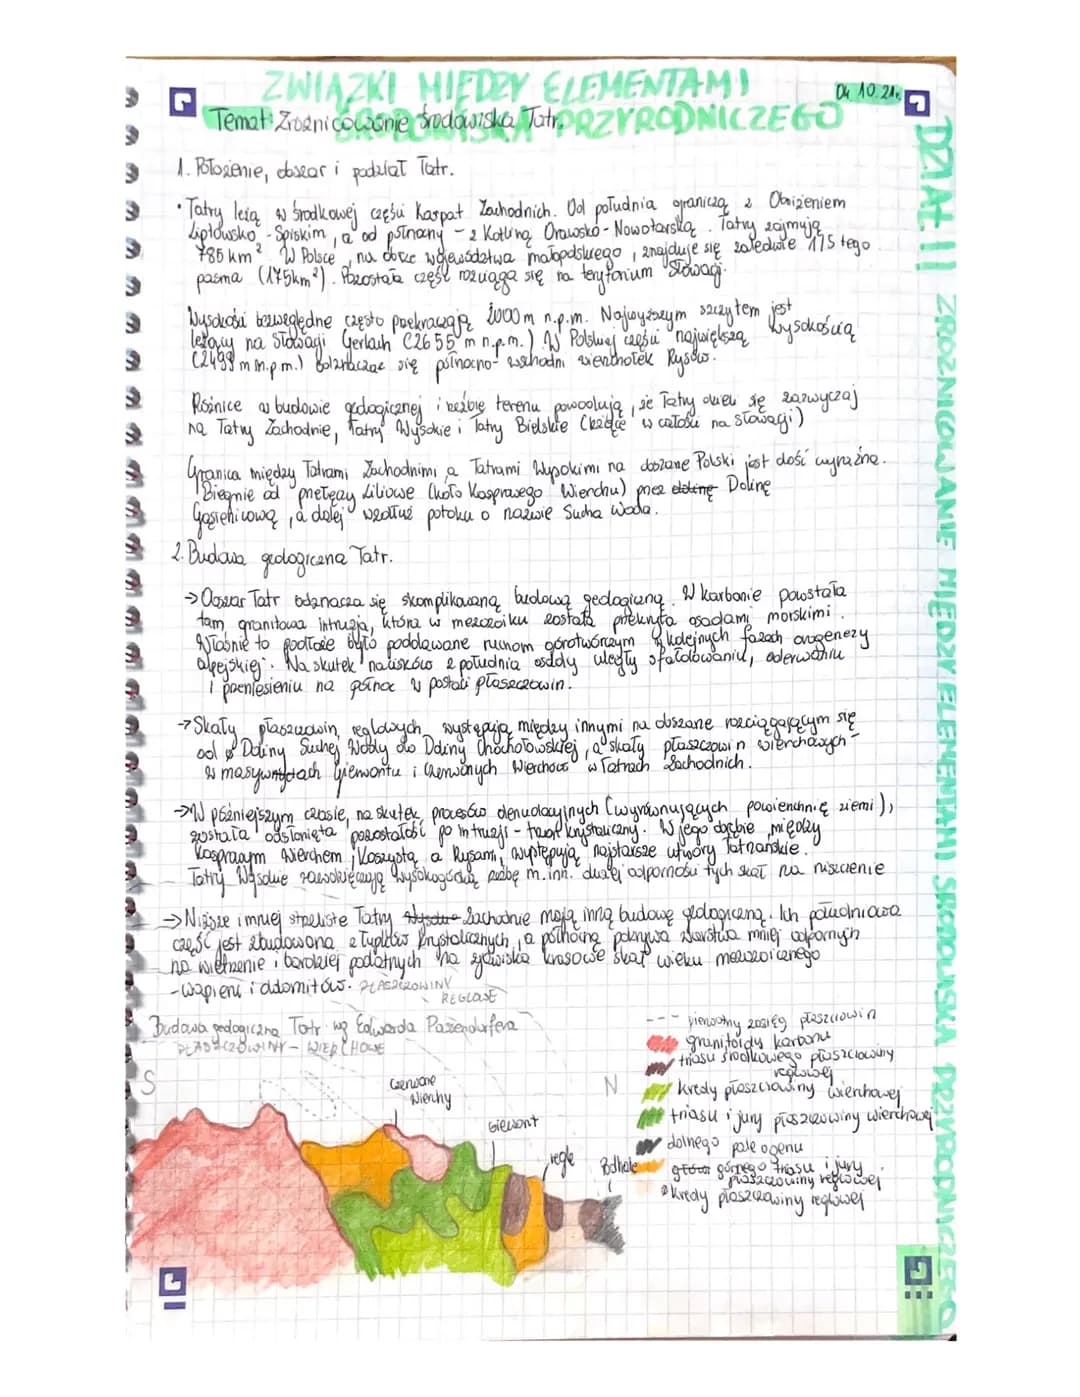 ZWIĄZKI MIĘDZY ELEMENTAMI
04.10.21r.
ŚRODOWISKA PRZYRODNICZEGO
Temat: Zróżnicowanie środowiska Tatr.
1. Położenie, obszar i podział Tatr.
• Tatry leżą w środkowej części Karpat Zachodnich. Od południa graniczą z Obniżeniem
Liptowsko - Spiskim, a od północny - z Kotliną Orawsko - Nowotarską. Tatry zajmują
785 km². W Polsce, na obsze województwa małopolskiego, znajduje się zaledwie 1/5 tego
pasma (175km²). Pozostała część rozciąga się na terytorium Słowacji.
Wysokości bezwzględne często przekraczają 2000 m n.p.m. Najwyższym szczytem jest
leżący na Słowacji Gerlach (2655 m n.p.m.) W Polskiej części największą wysokością
(2499 m n.p.m.) odznaczać się północno - wschodni wierzchołek Rysów.
Różnice w budowie geologicznej i rzeźbie terenu powodują, że Tatry dzieli się zazwyczaj
na Tatry Zachodnie, Tatry Wysokie i Tatry Bielskie (leżące w całości na Słowacji)
Granica między Tatrami Zachodnimi a Tatrami Wysokimi na obszarze Polski jest dość wyraźna.
Biegnie od przełęczy Liliowe (koło Kasprowego Wierchu) przez dolinę Dolinę
Gąsienicową, a dalej wzdłuż potoku o nazwie Sucha Woda.
2. Budowa geologiczna Tatr.
→ Obszar Tatr odznacza się skomplikowaną budową geologiczną. W karbonie powstała
tam granitowa intruzja, która w mezozoiku została przykryta osadami morskimi.
Właśnie to podłoże było poddawane ruchom górotwórczym w kolejnych fazach orogenezy
alpejskiej. Na skutek nacisków z południa osady uległy sfałdowaniu, oderwaniu
i przeniesieniu na północ w postaci płaszczowin.
→ Skały płaszczowin reglowych występują między innymi na obszarze rozciągającym się
od Doliny Suchej Wody do Doliny Chochołowskiej, a skały płaszczowin wierchowych -
w masywach Giewontu i Czerwonych Wierchów w Tatrach Zachodnich.
→ W późniejszym czasie, na skutek procesów denudacyjnych (wyrównujących powierzchnię ziemi),
została odsłonięta pozostałość po intruzji - trzon krystaliczny. W jego obrębie, między
Kasprowym Wierchem, Koszystą a Rysami, występują najstarsze utwory tatrzańskie.
Tatry Wysokie zawdzięczają wysokogórską rzeźbę m.inn. dużej odporności tych skał na niszczenie
→ Niższe i mniej strzeliste Tatry Wysokie Zachodnie mają inną budowę geologiczną. Ich południowa
część jest zbudowana z łupków krystalicznych, a północną pokrywa warstwa mniej odpornych
na wietrzenie i bardziej podatnych na zjawiska krasowe skał wieku mezozoicznego
- wapieni i dolomitów.
PŁASZCZOWINY
REGLOWE
Budowa geologiczna Tatr wg Edwarda Passendorfera
PŁASZCZOWINY - WIERCHOWE
S
Czerwone
Wierchy
Giewont
regle
Podhale
N
--- pierwotny zasięg płaszczowin
granitoidy karbonu
triasu środkowego płaszczowiny
reglowej
kredy płaszczowiny wierchowej
triasu i jury płaszczowiny wierchowej
dolnego paleogenu
górnego triasu i jury
płaszczowiny reglowej
kredy płaszczowiny reglowej
DZIAŁ II ZRÓŻNICOWANIE MIĘDZY ELEMENTAMI ŚRODOWISKA PRZYRODNICZEGO